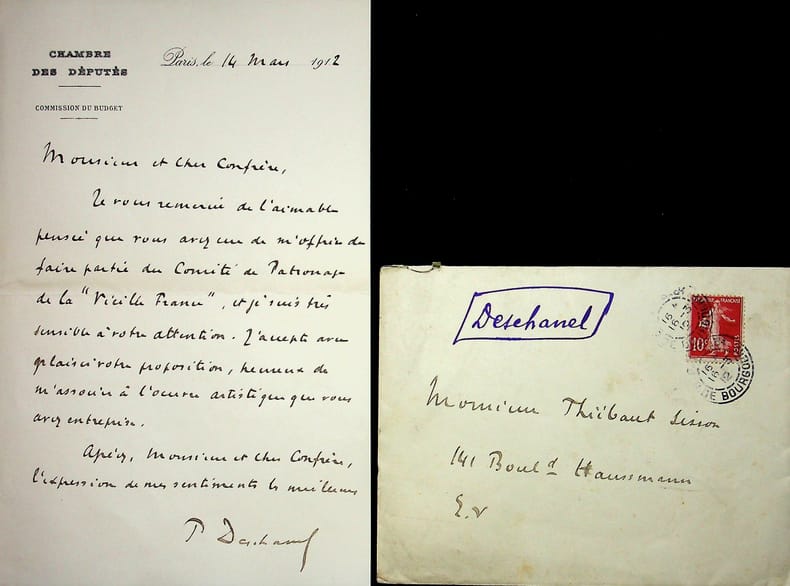 CHAMBRE
DES DÉPUTÉS
COMMISSION DU BUDGET
Paris, le 14 Mars 1912
Monsieur et cher Confrère,
Je vous remercie de l'aimable
pensée que vous avez eue de m'offrir de
faire partie du Comité de Patronage
de la "Vieille France", et je suis très
sensible à votre attention. J'accepte avec
plaisir votre proposition, heureux de
m'associer à l'œuvre artistique que vous
avez entreprise.
Agréez, Monsieur et cher Confrère,
l'expression de mes sentiments les meilleurs
P Deschanel
Deschanel
10c
DE BOURGOGNE
Monsieur Thiébaut Sisson
141 Boul.d Haussmann
E.V